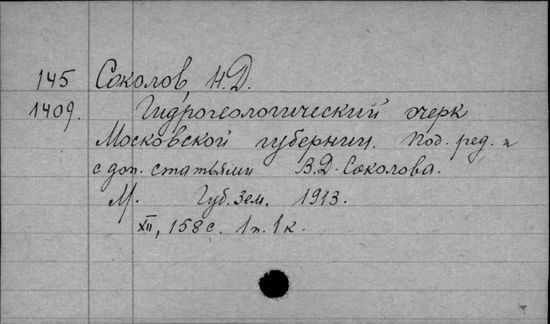 145 Соколов, Н.Д.
1409. Гидрогеологический очерк
Московской губернии. Под. ред. и
с доп. статьями В.Д. Соколова.
М. Губ. зем. 1913.
XII, 158 с. 1 п. 1 к.